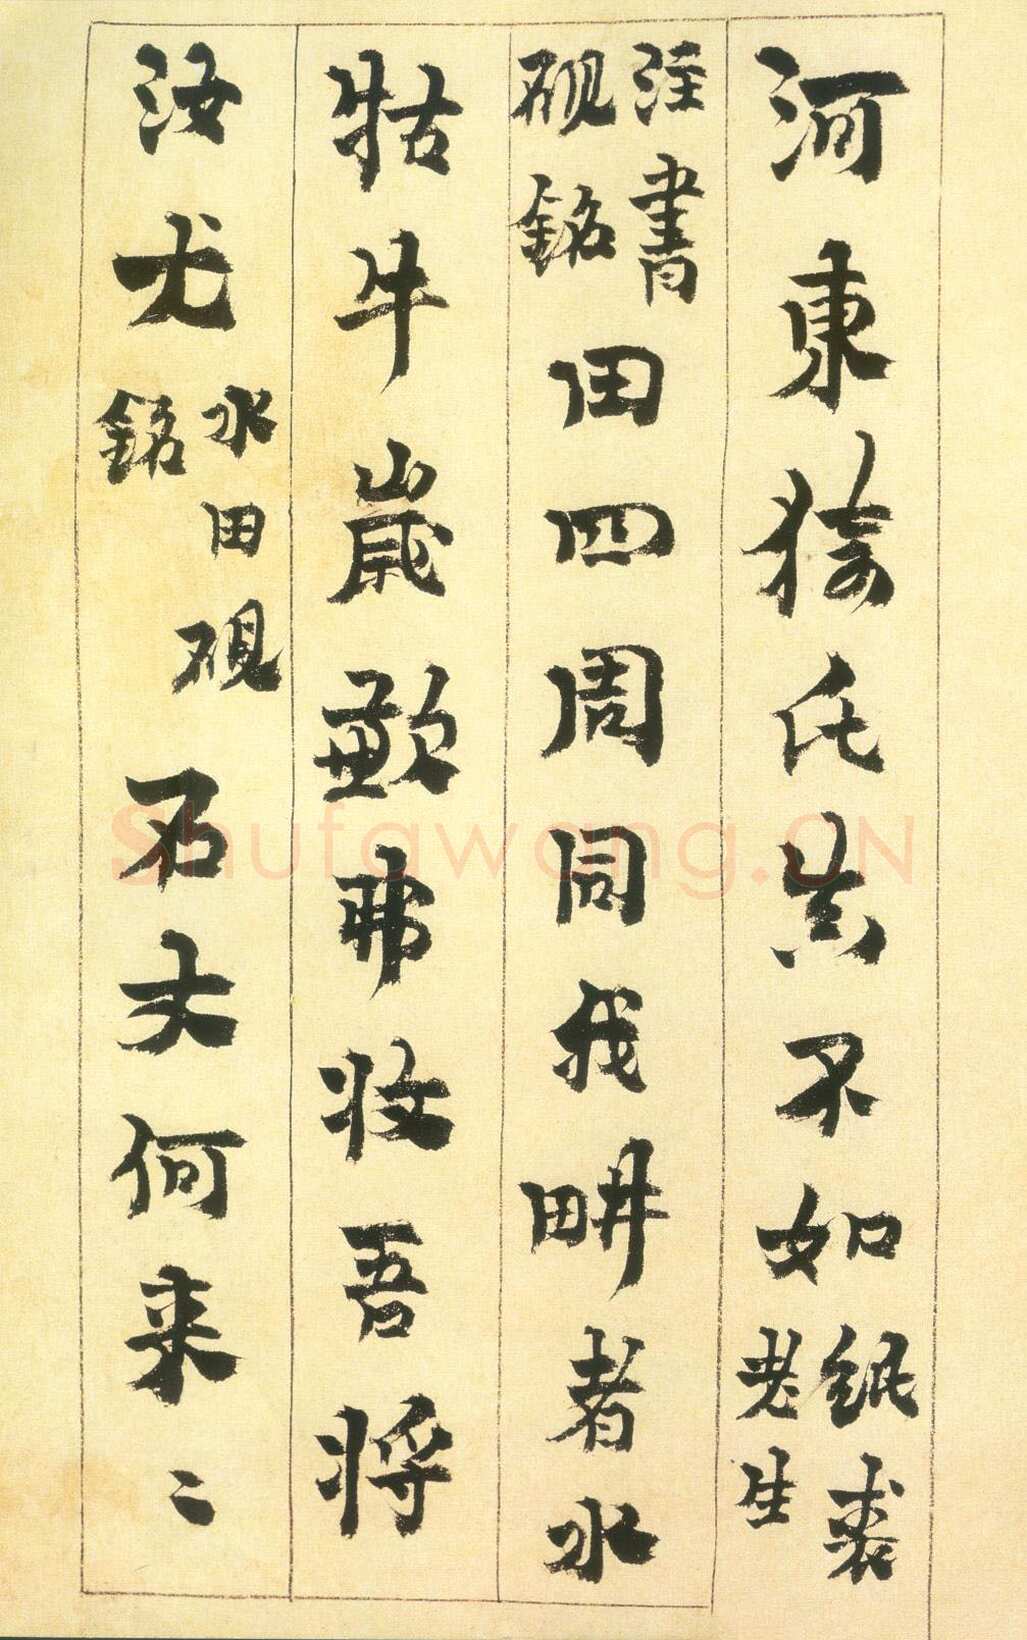 河東猗氏其不如紙裘老生
注書硯銘田四周同我畊者水
牯牛歲歉弗收吾將
汝尤水田硯銘石丈何来〻
Shufawang.CN